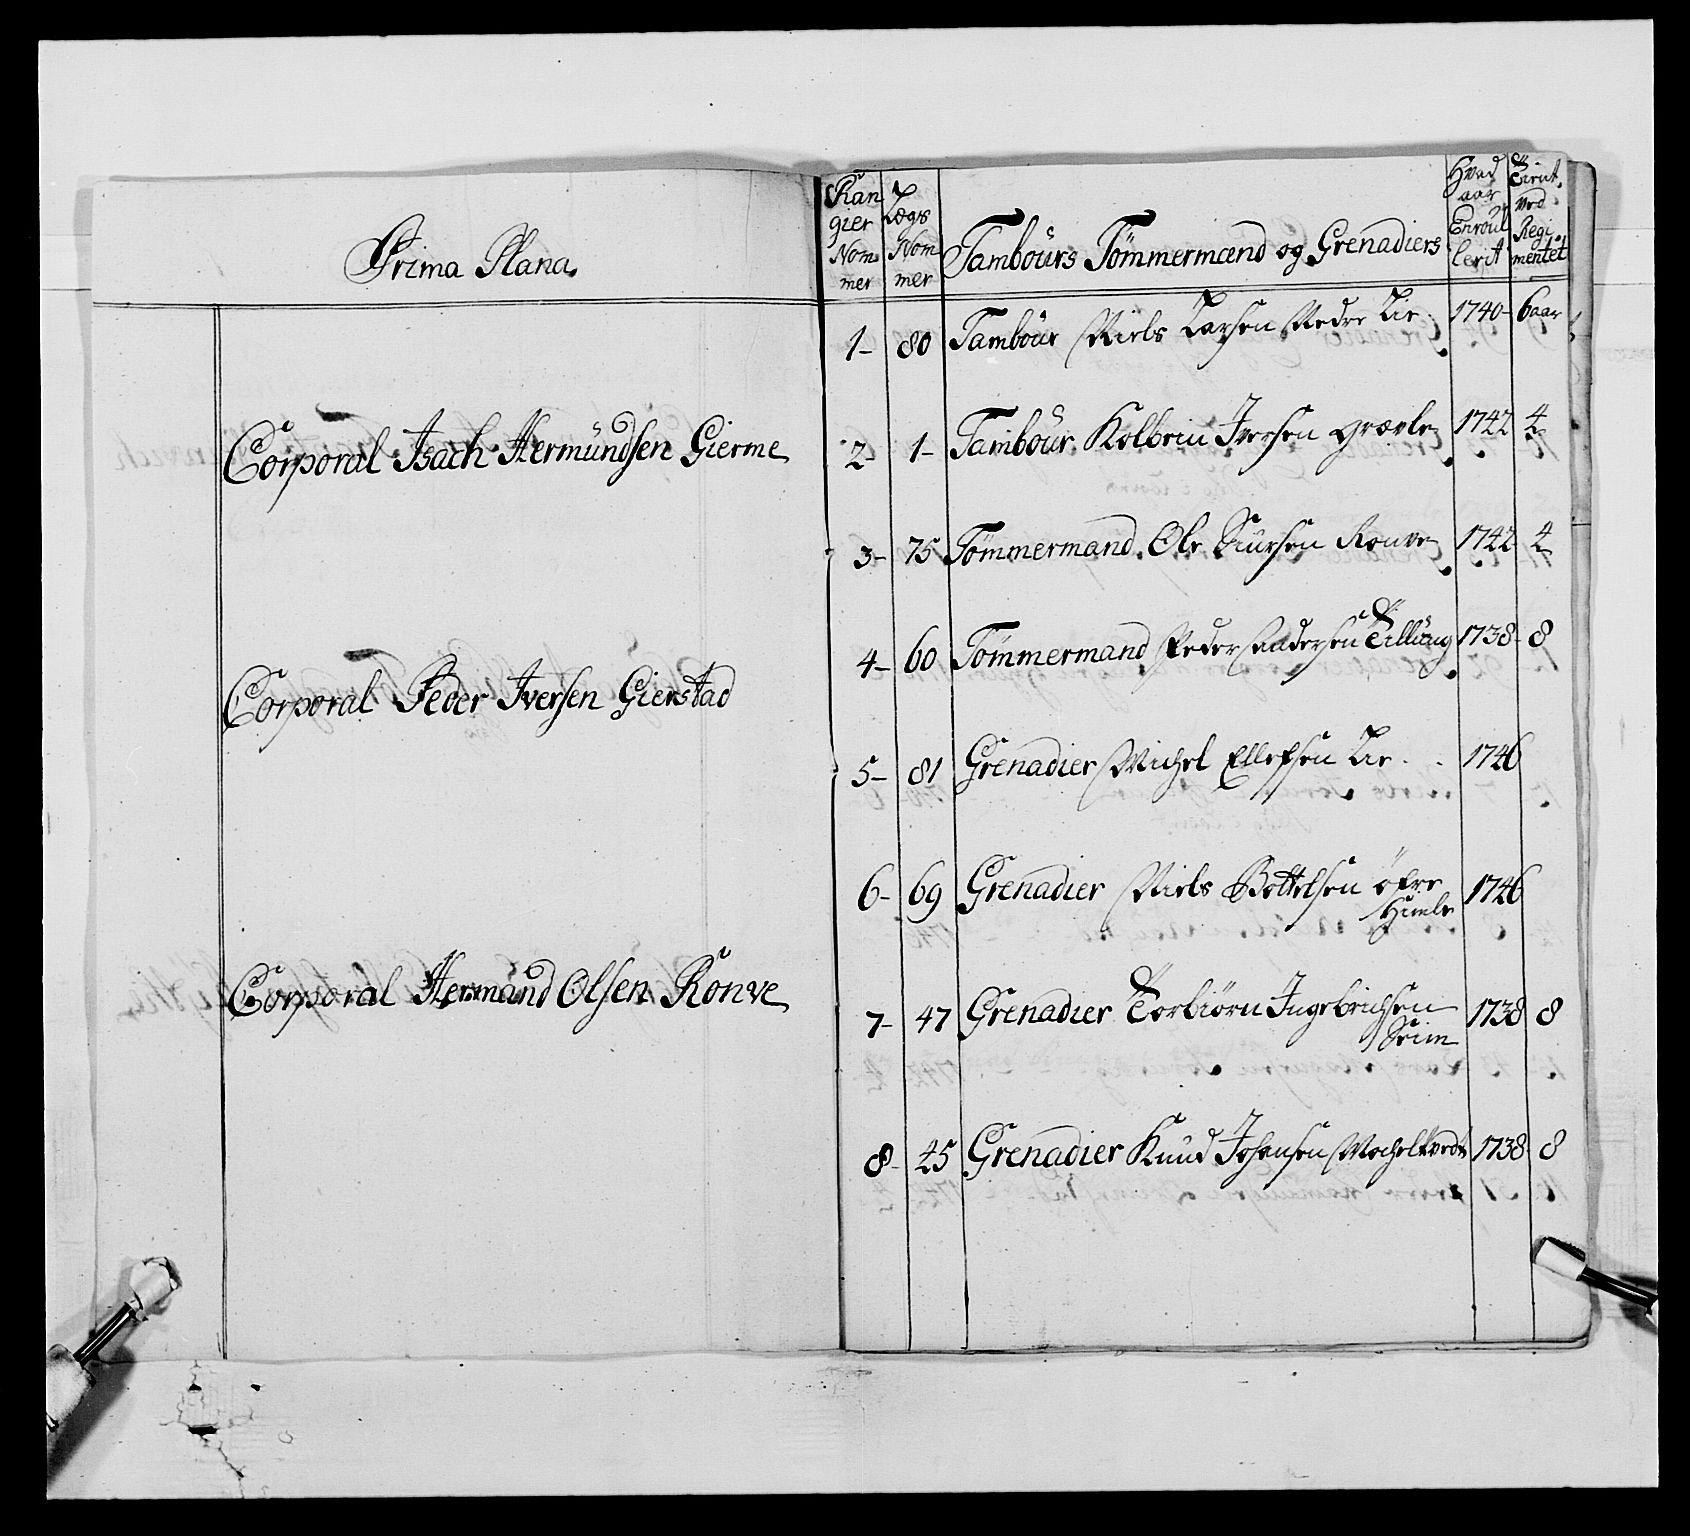 Prima Plana.
Corporal Isach Hermundsen Gierme
Corporal Peder Iversen Gierstad
Corporal Hermand Olsen Rönve
Ran
gier
Nom
mer
Lægs
Nom
mer
Tambours Tömmermænd og Grenadiers
Hvad
aar
Enroul
lerit
Tient
ved
Regi
mentet
1- 80 Tambour Niels Larsen Nedre Lie 1740- 6 aar
2- 1- Tambour Kolbein Iversen 1742 4
3- 75 Tömmermand Ole Siursen Rönve 1742 4
4- 60 Tömmermand Peder Andersen Tillung 1738- 8
5- 81 Grenadier Michel Ellefsen Lie 1746
6- 69 Grenadier Niels Bottelsen öfre 1746
Himle
7- 47 Grenadier Torbiörn Ingebrichsen 1738 8
Seim
8- 45 Grenadier Knud Johansen 1738 8